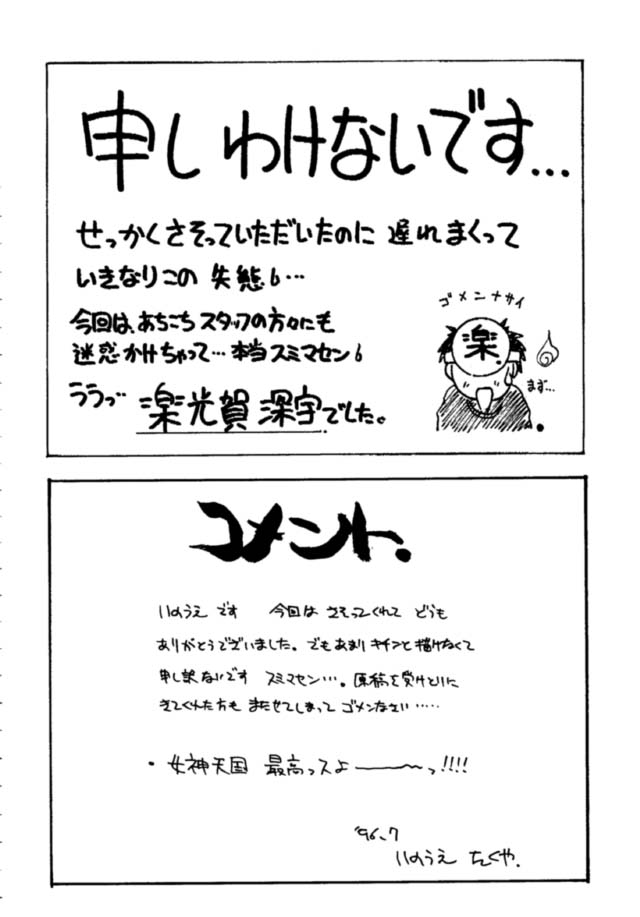 申しわけないです…
せっかくさそっていただいたのに 遅れまくって
いきなりこの 失態…
今回は、あちこち スタッフの方々にも
迷惑かけちゃって… 本当スミマセン
ゴメンナサイ
楽
まず…
ううっ… 楽光賀 深宇でした。
コメント.
いのうえ です 今回は さそってくれて どうも
ありがとうございました。でもあまり キチンと描けなくて
申し訳ないです スミマセン…。原稿を受けとりに
きてくれた方も またせてしまって ゴメンなさい……
・女神天国 最高っスよ────〜っ!!!!
'96.7
いのうえ たくや.